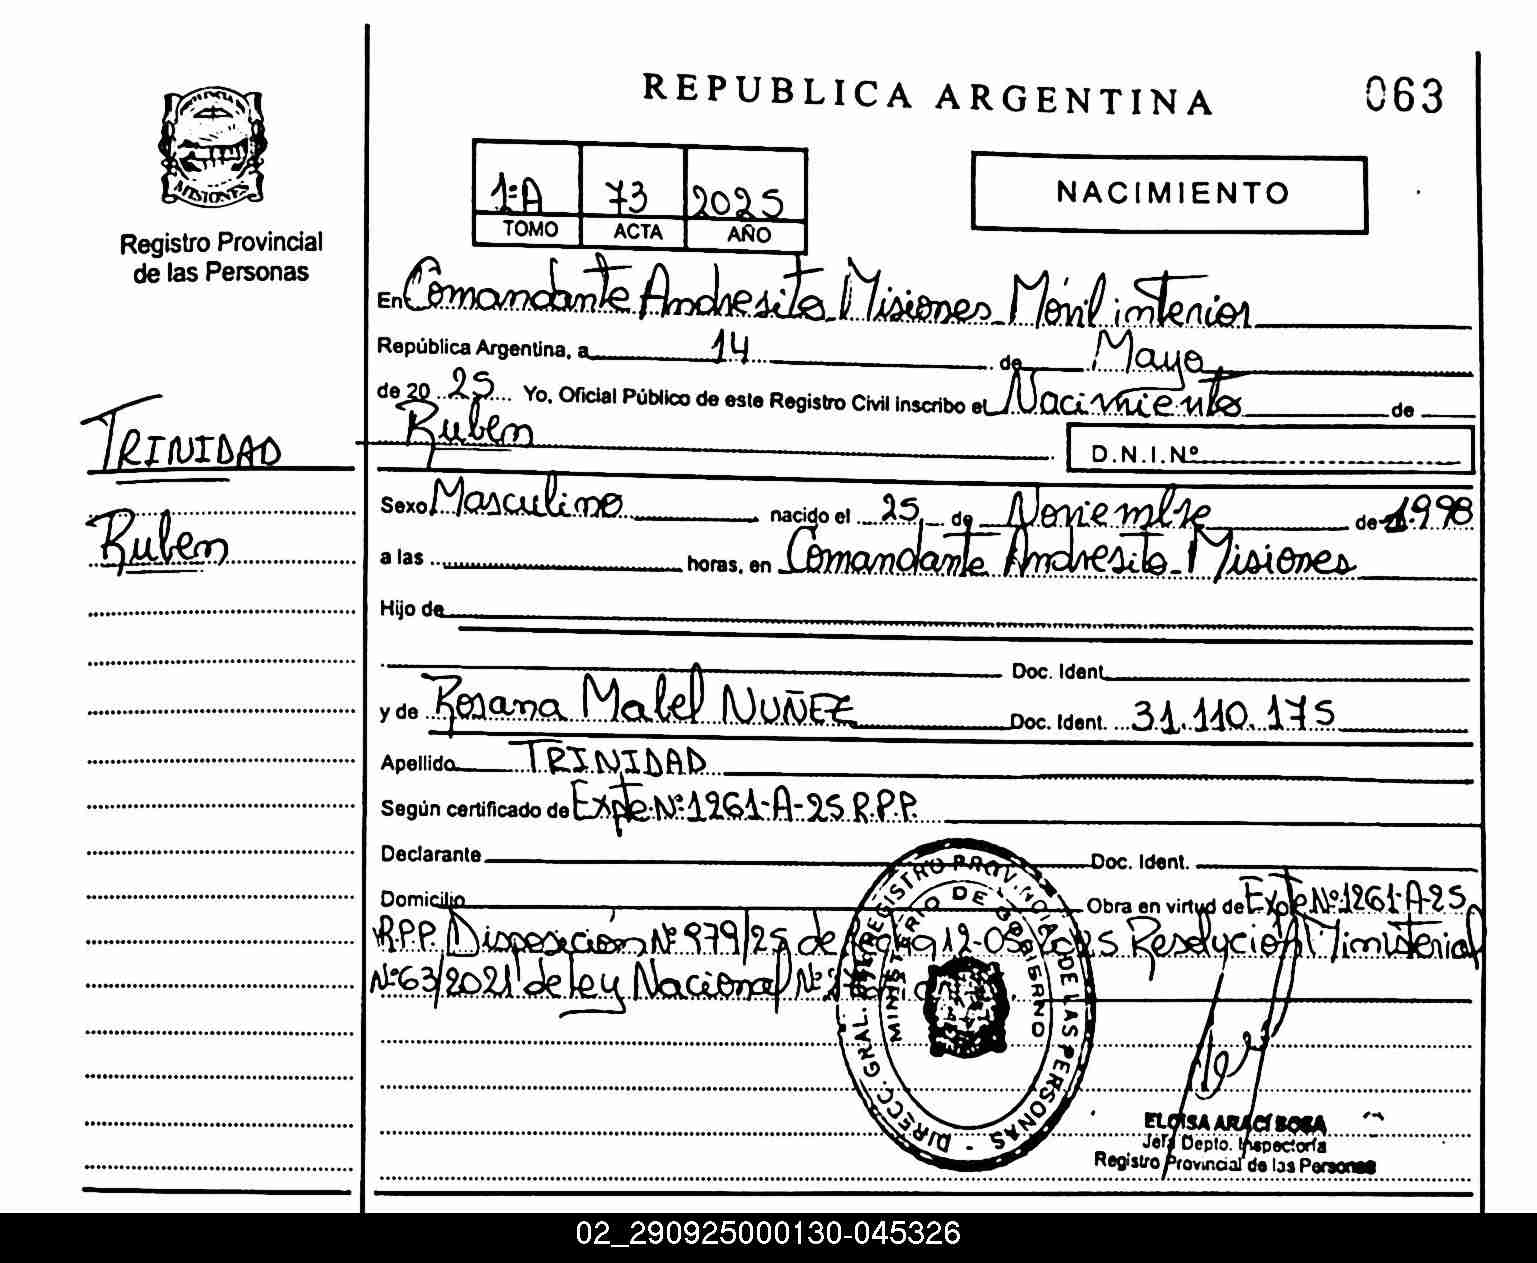 REPUBLICA ARGENTINA
063
MISIONES
Registro Provincial
de las Personas
1ºA 73 2025
TOMO ACTA AÑO
NACIMIENTO
En Comandante Andresito Misiones Móvil interior
República Argentina, a 14 de Mayo
de 20 25 Yo, Oficial Público de este Registro Civil inscribo el Nacimiento de
Ruben
D.N.I.Nº
TRINIDAD
Ruben
Sexo Masculino nacido el 25 de Noviembre de 1.998
a las horas, en Comandante Andresito Misiones
Hijo de
Doc. Ident.
y de Rosana Mabel NUÑEZ Doc. Ident. 31.110.175
Apellido TRINIDAD
Según certificado de Expte.Nº1261-A-25 R.P.P.
Declarante Doc. Ident.
Domicilio Obra en virtud de Expte Nº1261-A-25
R.P.P. Disposición Nº 979/25 de 12-05-2025 Resolución Ministerial
Nº63/2021 de Ley Nacional Nº
DIRECC. GRAL. DEL REGISTRO PROVINCIAL DE LAS PERSONAS -
MINISTERIO DE GOBIERNO
ELOISA ARACI SOSA
Jefa Depto. Inspectoría
Registro Provincial de las Personas
02_290925000130-045326